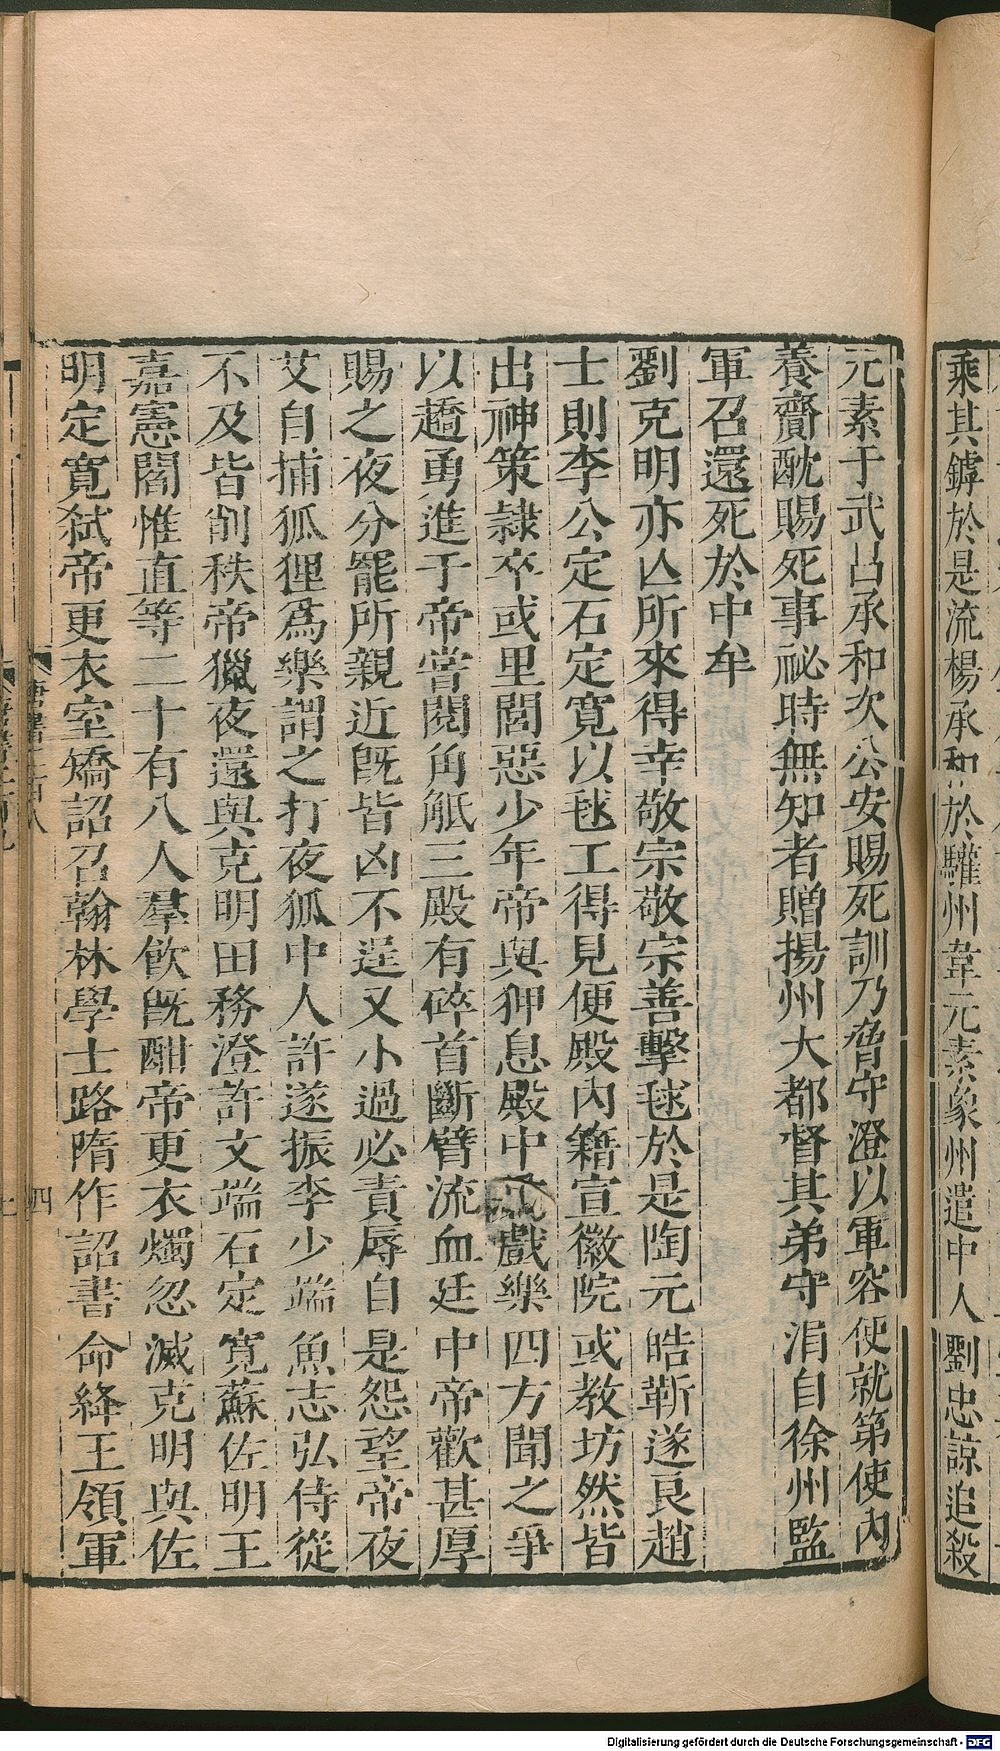 乘其鏬於是流楊承和於驩州韋元素象州遣中人劉忠諒追殺
元素于武昌承和次公安賜死訓乃脅守澄以軍容使就第使內
養齎酖賜死事祕時無知者贈揚州大都督其弟守涓自徐州監
軍召還死於中牟
劉克明亦亾所來得幸敬宗敬宗善擊毬於是陶元皓靳遂良趙
士則李公定石定寛以毬工得見便殿內籍宣徽院或教坊然皆
出神策隷卒或里閭惡少年帝與狎息殿中爲戲樂四方聞之爭
以趫勇進于帝嘗閱角觝三殿有碎首斷臂流血廷中帝歡甚厚
賜之夜分罷所親近旣皆凶不逞又小過必責辱自是怨望帝夜
艾自捕狐狸爲樂謂之打夜狐中人許遂振李少端魚志弘侍從
不及皆削秩帝獵夜還與克明田務澄許文端石定寛蘇佐明王
嘉憲閻惟直等二十有八人羣飮旣酣帝更衣燭忽滅克明與佐
明定寛弑帝更衣室矯詔召翰林學士路隋作詔書命絳王領軍
四
Digitalisierung gefördert durch die Deutsche Forschungsgemeinschaft - DFG